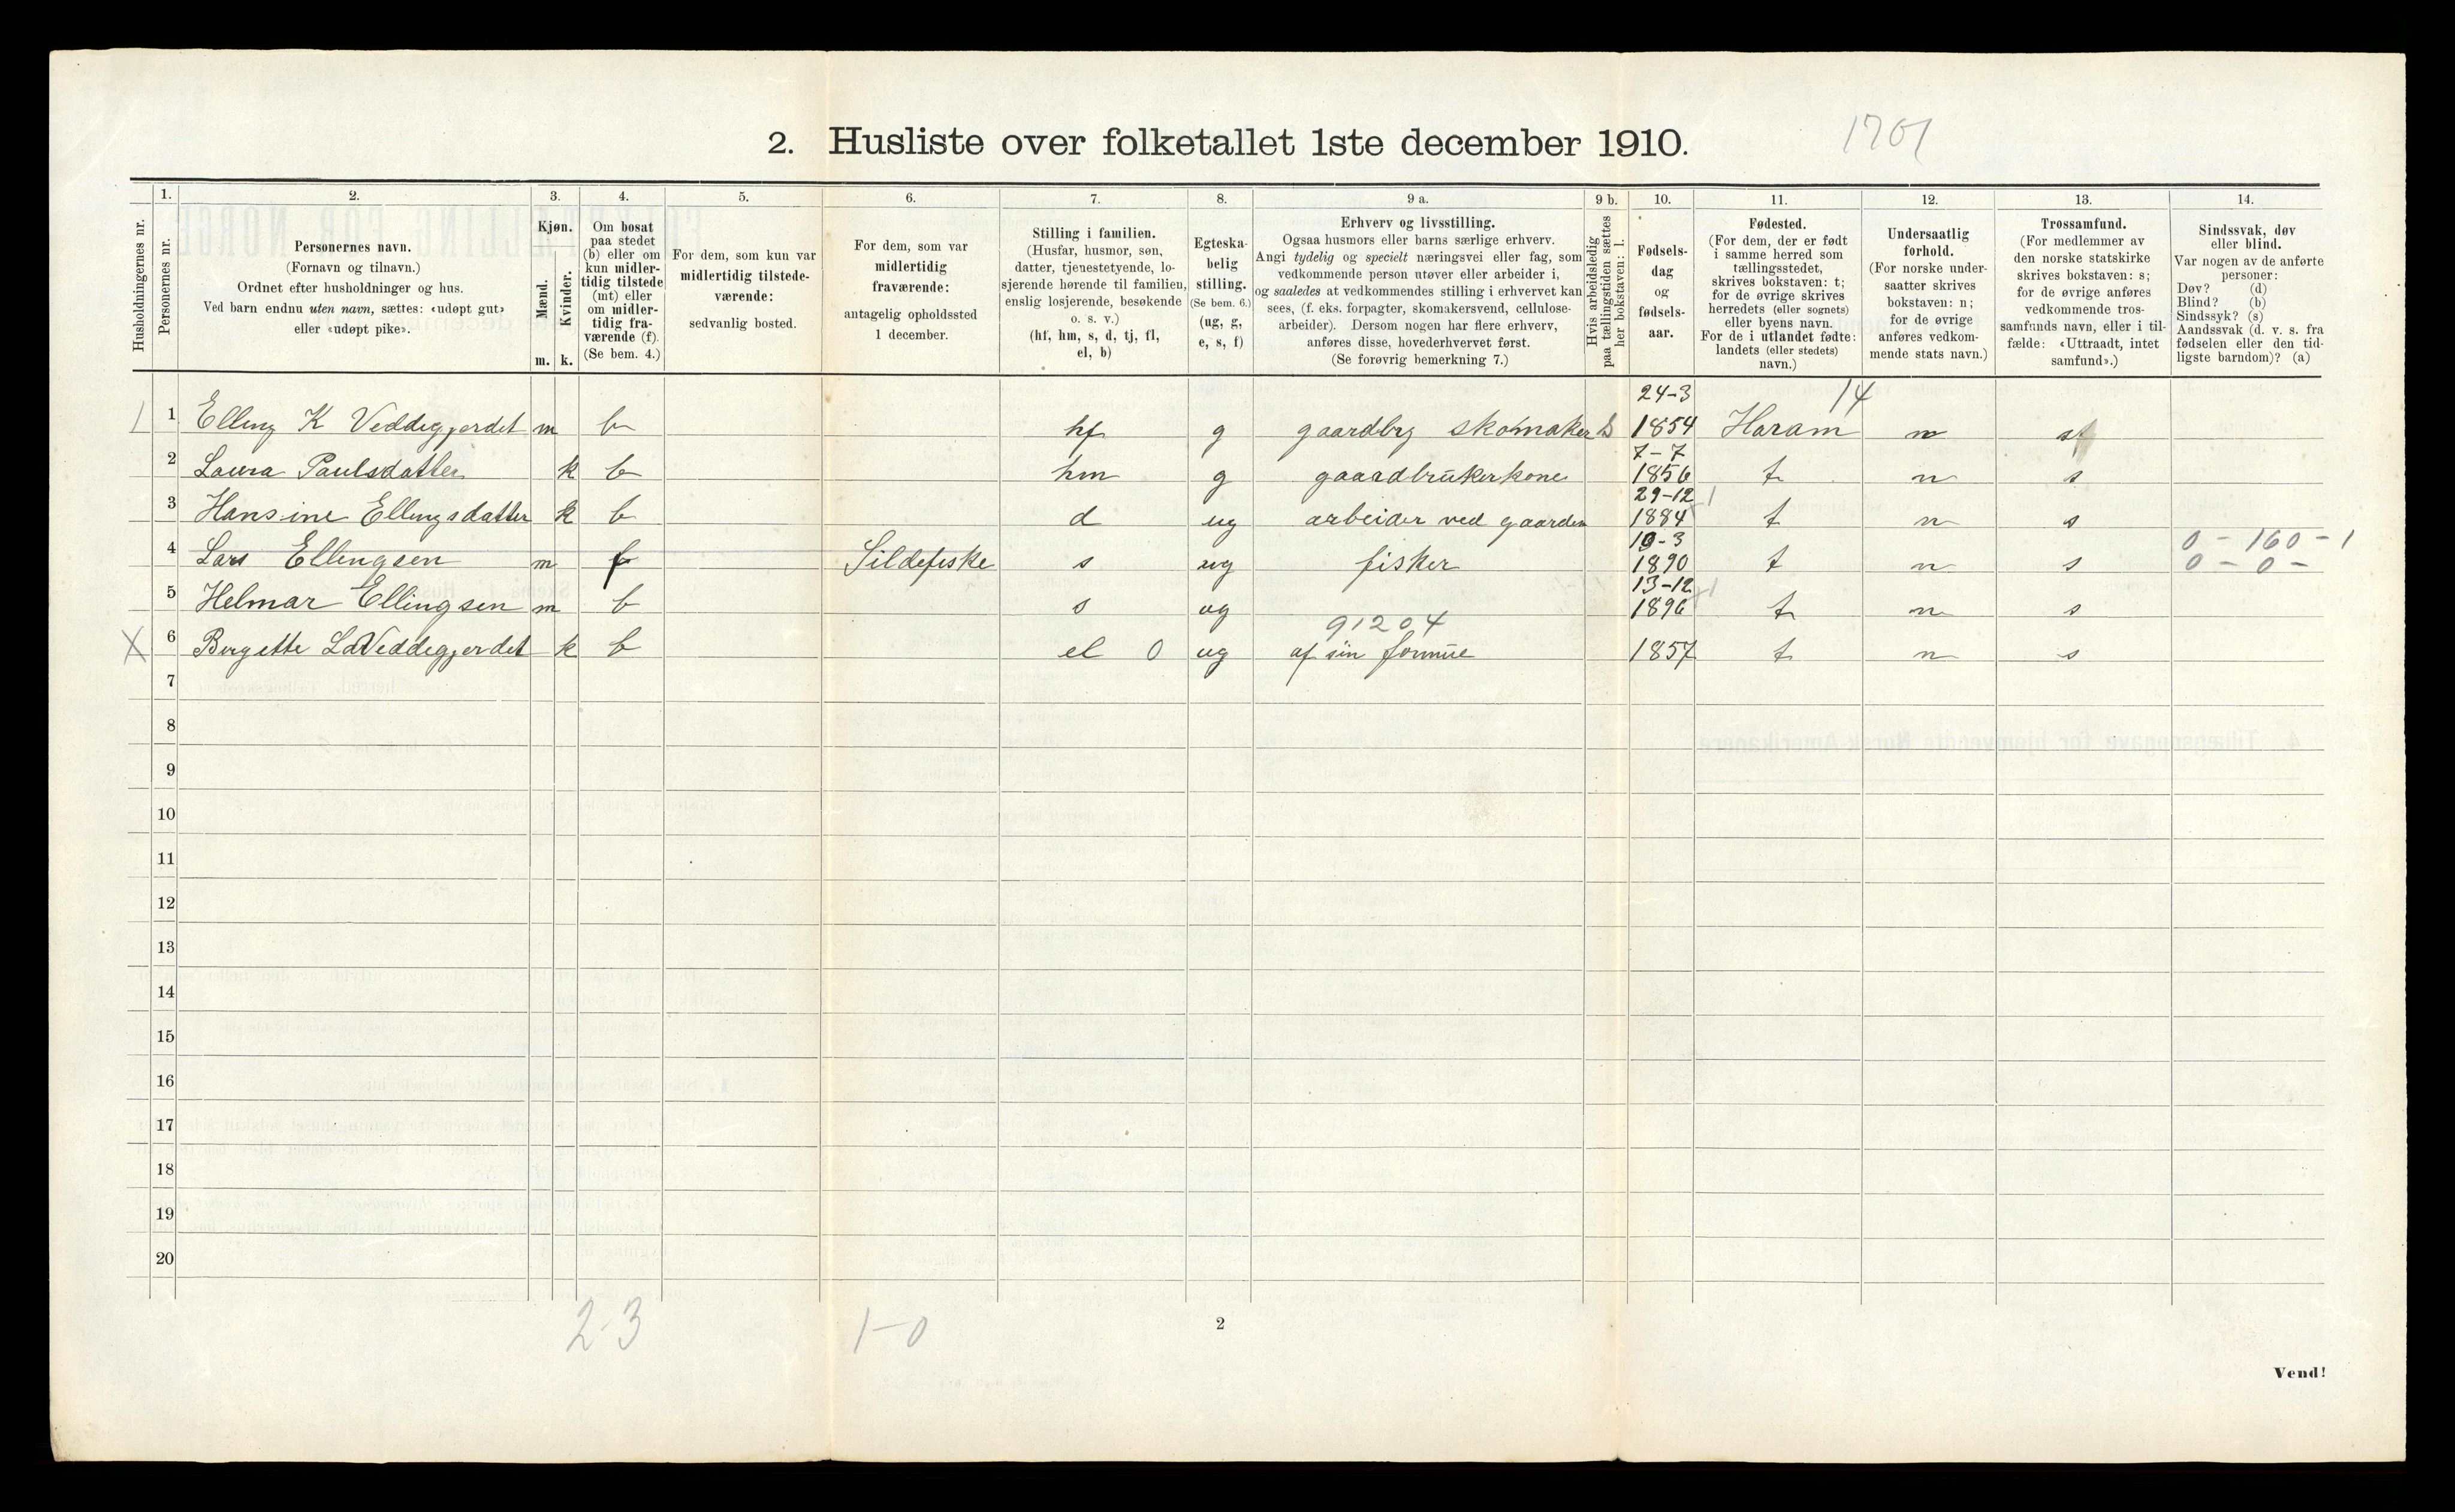 2. Husliste over folketallet 1ste december 1910.
1701
Husholdningernes nr.
1.
Personernes nr.
2.
Personernes navn.
(Fornavn og tilnavn.)
Ordnet efter husholdninger og hus.
Ved barn endnu uten navn, sættes: «udøpt gut»
eller «udøpt pike».
3.
Kjøn.
Mænd.
Kvinder.
m. k.
4.
Om bosat
paa stedet
(b) eller om
kun midler-
tidig tilstede
(mt) eller
om midler-
tidig fra-
værende (f).
(Se bem. 4.)
5.
For dem, som kun var
midlertidig tilstede-
værende:
sedvanlig bosted.
6.
For dem, som var
midlertidig
fraværende:
antagelig opholdssted
1 december.
7.
Stilling i familien.
(Husfar, husmor, søn,
datter, tjenestetyende, lo-
sjerende hørende til familien,
enslig losjerende, besøkende
o. s. v.)
(hf, hm, s, d, tj, fl,
el, b)
8.
Egteska-
belig
stilling.
(Se bem. 6.)
(ug, g,
e, s, f)
9 a.
Erhverv og livsstilling.
Ogsaa husmors eller barns særlige erhverv.
Angi tydelig og specielt næringsvei eller fag, som
vedkommende person utøver eller arbeider i,
og saaledes at vedkommendes stilling i erhvervet kan
sees, (f. eks. forpagter, skomakersvend, cellulose-
arbeider). Dersom nogen har flere erhverv,
anføres disse, hovederhvervet først.
(Se forøvrig bemerkning 7.)
9 b.
Hvis arbeidsledig
paa tællingstiden sættes
her bokstaven: l.
10.
Fødsels-
dag
og
fødsels-
aar.
11.
Fødested.
(For dem, der er født
i samme herred som
tællingsstedet,
skrives bokstaven: t;
for de øvrige skrives
herredets (eller sognets)
eller byens navn.
For de i utlandet fødte:
landets (eller stedets)
navn.)
12.
Undersaatlig
forhold.
(For norske under-
saatter skrives
bokstaven: n;
for de øvrige
anføres vedkom-
mende stats navn.)
13.
Trossamfund.
(For medlemmer av
den norske statskirke
skrives bokstaven: s;
for de øvrige anføres
vedkommende tros-
samfunds navn, eller i til-
fælde: «Uttraadt, intet
samfund».)
14.
Sindssvak, døv
eller blind.
Var nogen av de anførte
personer:
Døv? (d)
Blind? (b)
Sindssyk? (s)
Aandssvak (d. v. s. fra
fødselen eller den tid-
ligste barndom)? (a)
24-3 14
1 Elling K Veddegjerdet m b hf g gaardbrg skomaker 1854 Haram n
7-7
2 Laura Paulsdatter k b hm g gaardbrukerkone 1856 t n s
29-12
3 Hansine Ellingsdatter k b d ug arbeider ved gaarden 1884 t n s
19-3 0 - 160 - 1
4 Lars Ellingsen m f Sildefiske s ug fisker 1890 t n s 0 - 0 -
13-12
5 Helmar Ellingsen m b s ug 1896 t n s
91204
X 6 Bergette Ld Veddegjerdet k b el 0 ug af sin formue 1857 t n s
7
8
9
10
11
12
13
14
15
16
17
18
19
20
2-3 1-0
2
Vend!